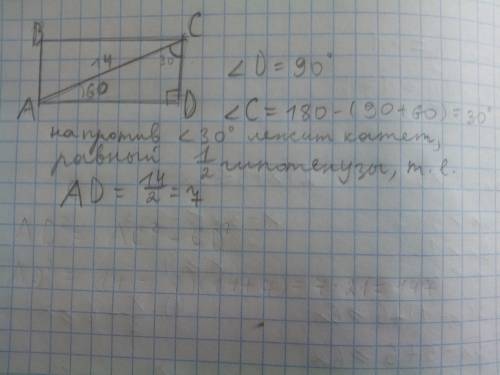 B C
14 30°
60
A D
∠D = 90°
∠C = 180 - (90 + 60) = 30°
напротив ∠30° лежит катет,
равный 1/2 гипотенузы, т. е.
AD = 14/2 = 7